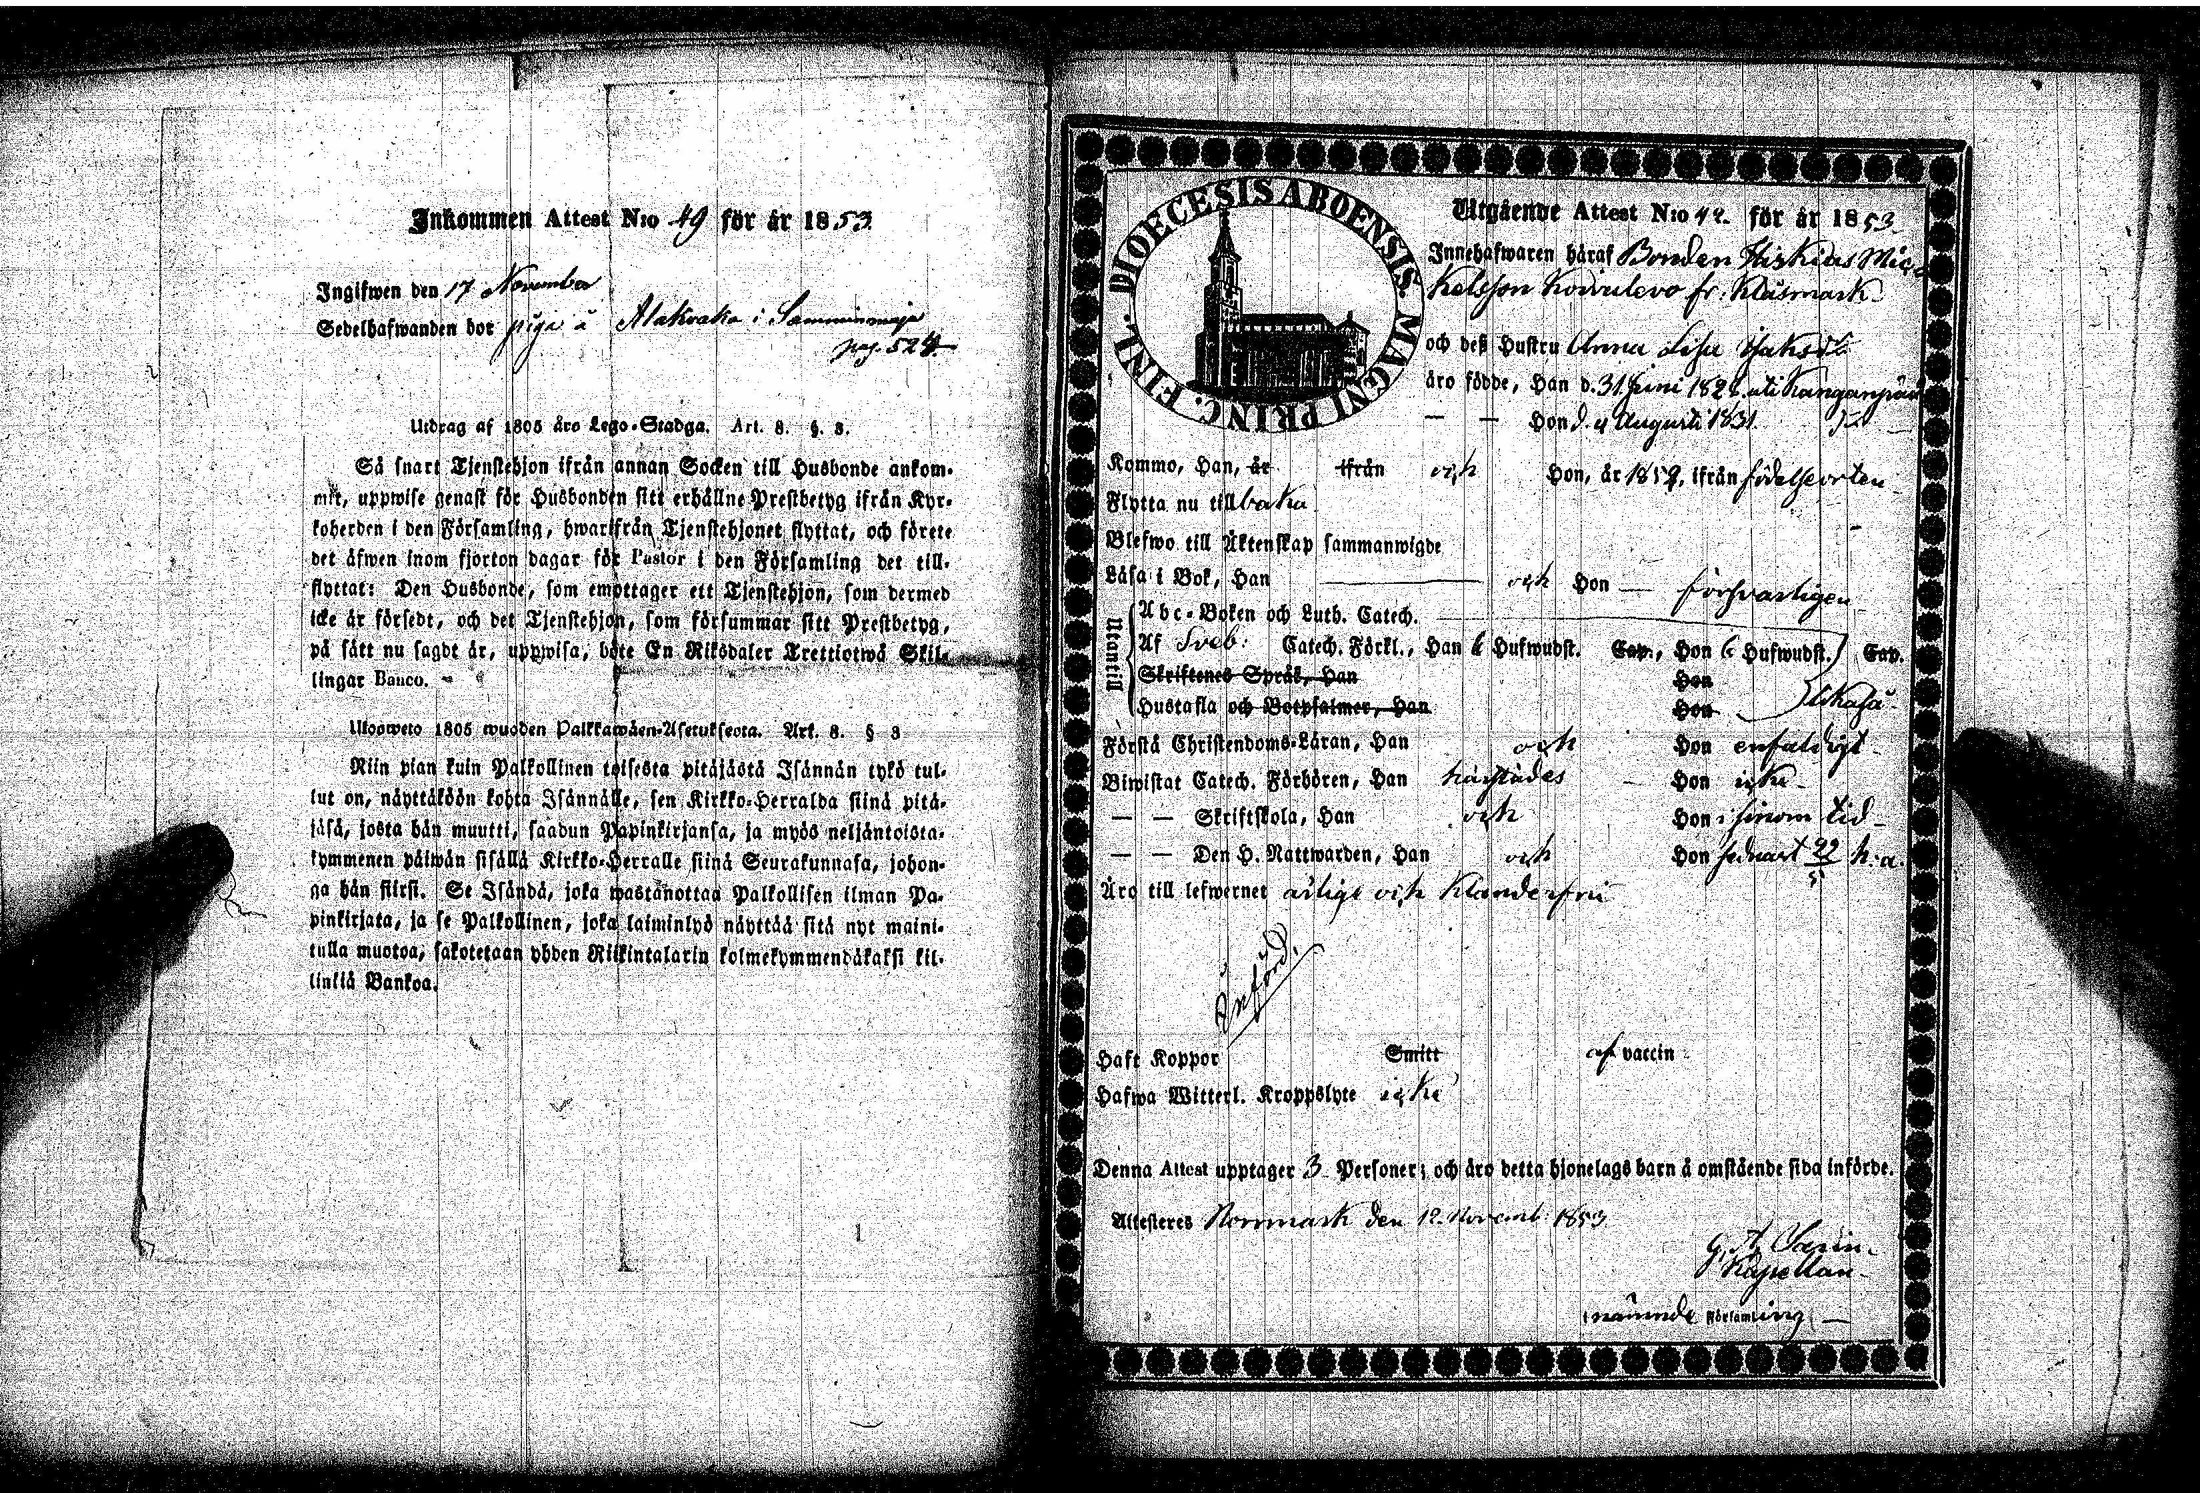 Inkommen Attest N:o 49 för år 1853
Ingifwen den 17 November
Sedelhafwanden bor piga å Alakoaka i Samminmaja
pag. 524
Utdrag af 1805 års Lego-Stadga. Art. 8. §. 3.
Så snart Tjenstehjon ifrån annan Socken till Husbonde ankom-
mit, uppwise genast för Husbonden sitt erhållne Prestbetyg ifrån Kyr-
koherden i den Församling, hwarifrån Tjenstehjonet flyttat, och förete
det äfwen inom fjorton dagar för Pastor i den Församling det till-
flyttat: Den Husbonde, som emottager ett Tjenstehjon, som dermed
icke är försedt, och det Tjenstehjon, som försummar sitt Prestbetyg,
på sätt nu sagdt är, uppwisa, böte En Riksdaler Trettiotwå Skil-
lingar Banco.
Ulosweto 1805 wuoden Palkkawäen-Asetuksesta. Art. 8. § 3
Niin pian kuin Palkollinen toisesta pitäjästä Isännän tykö tul-
lut on, näyttäköön kohta Isännälle, sen Kirkko-Herralda siinä pitä-
jäsä, josta hän muutti, saadun Papinkirjansa, ja myös neljäntoista-
kymmenen päiwän sisällä Kirkko-Herralle siinä Seurakunnasa, johon-
ga hän siirsi. Se Isändä, joka wastanottaa Palkollisen ilman Pa-
pinkirjata, ja se Palkollinen, joka laiminlyö näyttää sitä nyt maini-
tulla muotoa, sakotetaan yhden Riikintalarin kolmekymmendäkaksi kil-
linkiä Bankoa.
DIOECESIS ABOENSIS. MAGNI PRINC. FINL.
Utgående Attest N:o 42. för år 1853.
Innehafwaren häraf Bonden Hiskias Mic
kelsson Koivulevo fr. Klåsmark
och deß Hustru Anna Lisa Isaksdr
äro födde, Han d. 31 Juni 182 uti Kangasjärvi
— — Hon d. 4 Augusti 1831
Kommo, Han, år ifrån och Hon, år 1852, ifrån födelseorten
Flytta nu tillbaka
Blefwo till Äktenskap sammanwigde
Läsa i Bok, Han och Hon — försvarligen
Utantill
Abc-Boken och Luth. Catech.
Af Sveb: Catech. Förkl., Han 6 Hufwudst. Cap., Hon 6 Hufwudst. Cap.
Skriftenes Språk, Han Hon
Hustafla och Botpsalmer, Han Hon likaså
Förstå Christendoms-Läran, Han och Hon enfaldigt
Biwistat Catech. Förhören, Han härstädes Hon icke
— — Skriftskola, Han och Hon i sinom tid
— — Den H. Nattwarden, Han och Hon senast 22/5 h. a.
Äro till lefwernet ärliga och klanderfri
Införd.
Haft Koppor Smitt af vaccin
Hafwa Witterl. Kroppslyte icke
Denna Attest upptager 3 Personer; och äro detta hjonelags barn å omstående sida införde.
Attesteres Norrmark den 12 Novemb: 1853
Kapellan
nämnde Församling